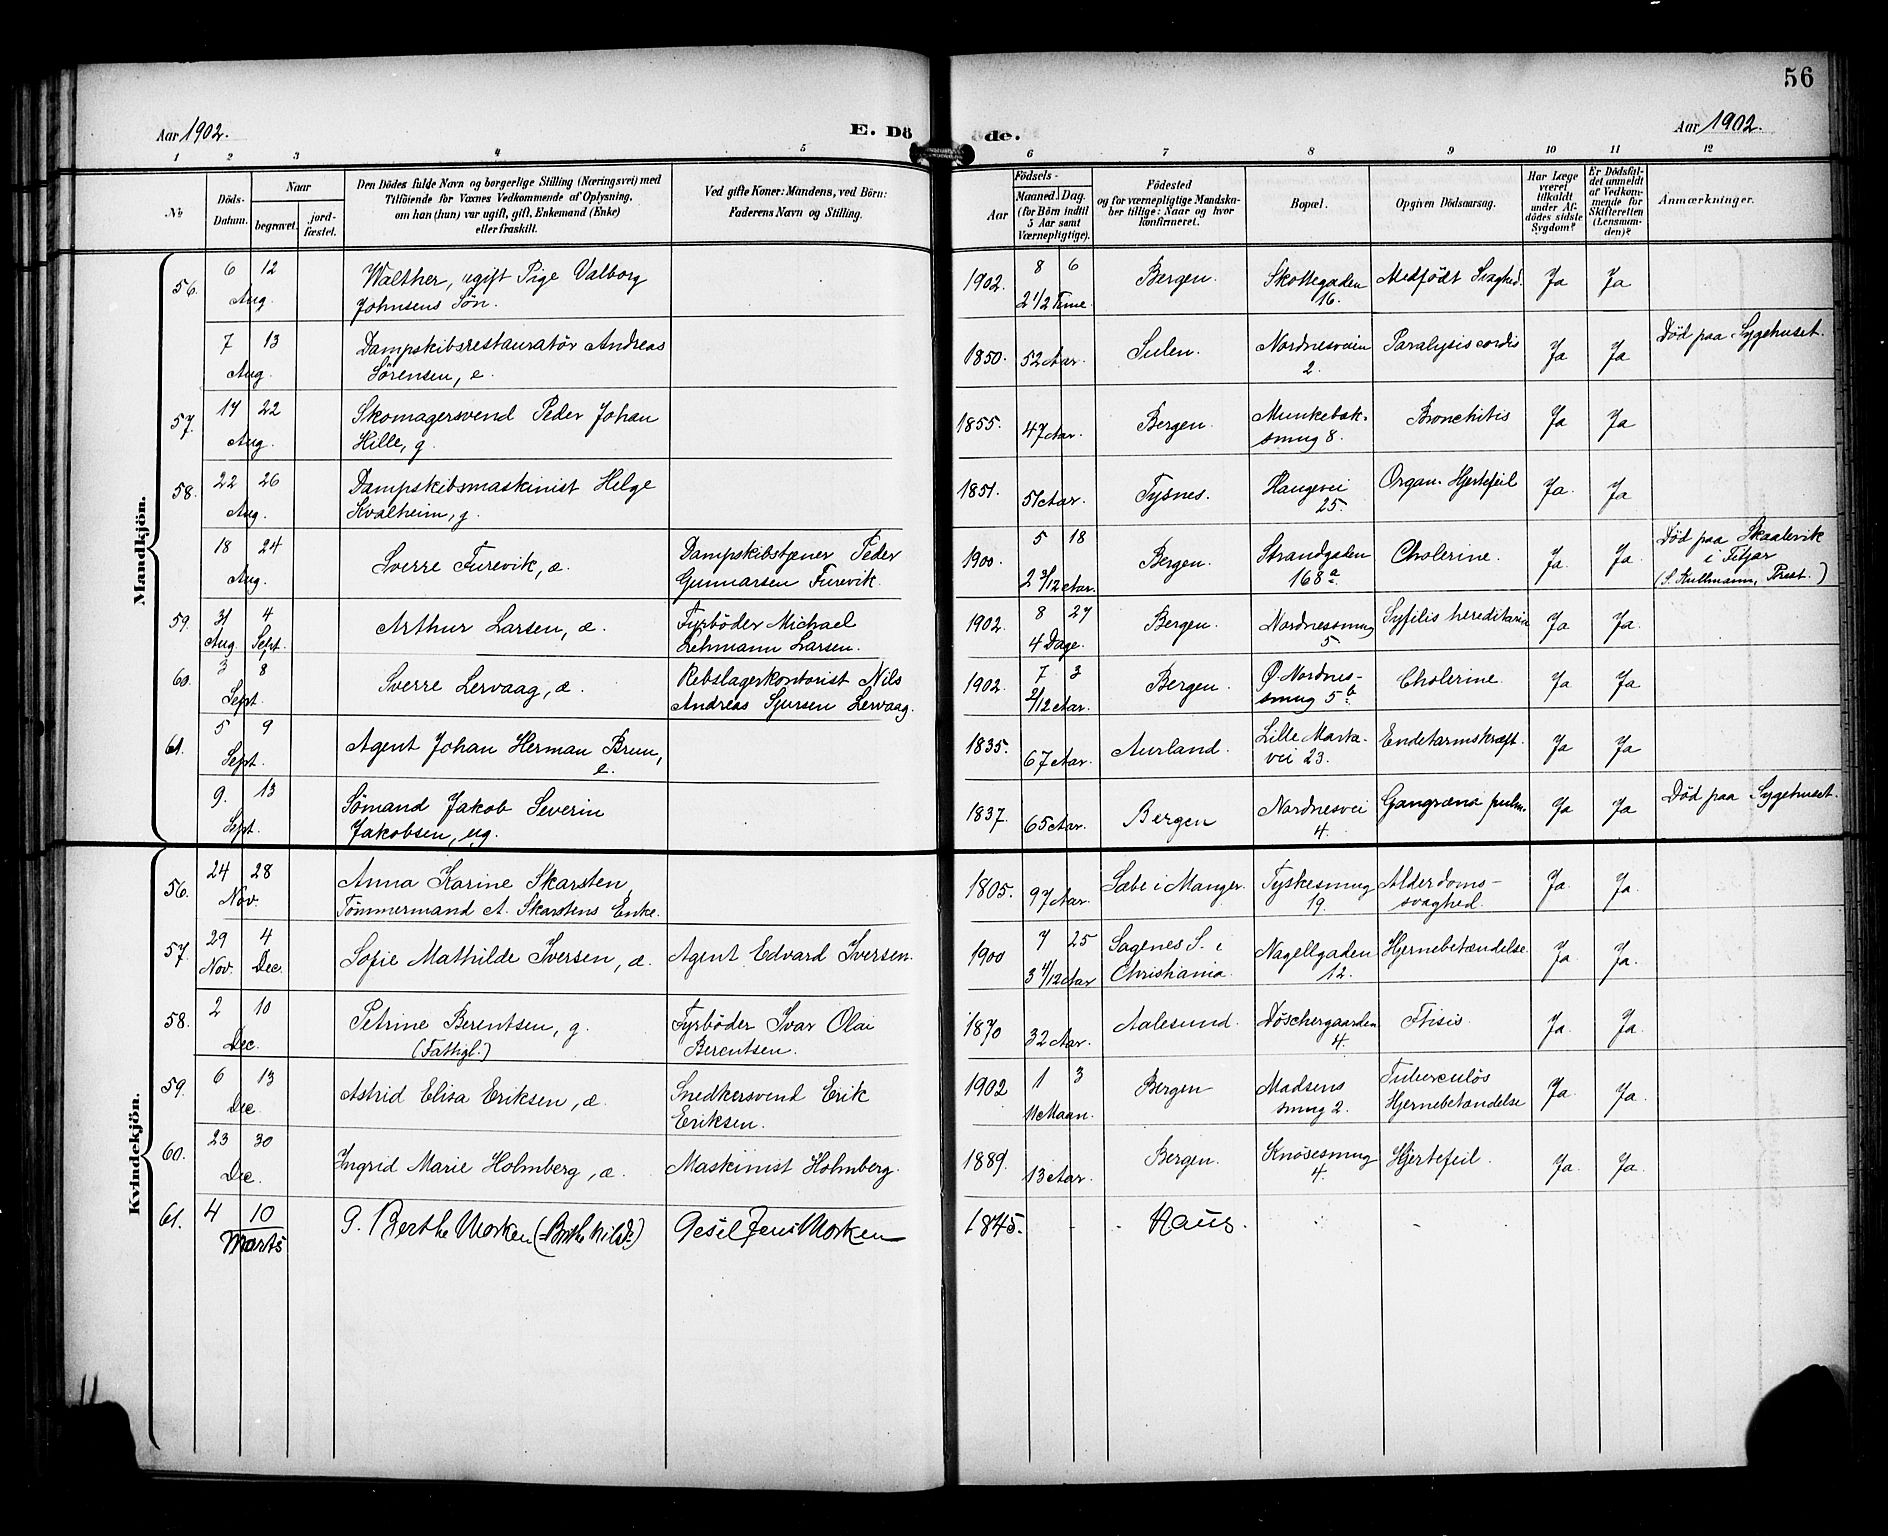 56
Aar 1902.
E. Döde.
Aar 1902.
1 2 3 4 5 6 7 8 9 10 11 12
No
Döds-Datum.
Naar
begravet.
jord-fæstet.
Den Dödes fulde Navn og borgerlige Stilling (Næringsvei) med
Tilföiende for Voxnes Vedkommende af Oplysning,
om han (hun) var ugift, gift, Enkemand (Enke)
eller fraskilt.
Ved gifte Koner: Mandens, ved Börn:
Faderens Navn og Stilling.
Födsels-
Aar
Maaned Dag.
(for Börn indtil
5 Aar samt
Værnepligtige).
Födested
og for værnepligtige Mandska-
ber tillige: Naar og hvor
konfirmeret.
Bopæl.
Opgiven Dödsaarsag.
Har Læge
været
tilkaldt
under Af-
dödes sidste
Sygdom?
Er Dödsfal-
det anmeldt
af Vedkom-
mende for
Skifteretten
(Lensman-
den)?
Anmærkninger.
Mandkjön.
56. 6 12 Aug. Walther, ugift Pige Valborg
Johnsens Sön.
1902. 8 6 2 1/2 Time. Bergen. Skottegaden
16. Medfödt Svaghed. Ja Ja
7 13 Aug. Dampskibsrestauratör Andreas
Sörensen, e.
1850. 52 Aar. Sulen. Nordnesveien
2. Paralysis cordis Ja Ja Död paa Sygehuset.
57. 14 22 Aug. Skomagersvend Peder Johan
Hille, g.
1855. 47 Aar. Bergen. Munkebæk-
smug 8. Bronchitis Ja Ja
58. 22 26 Aug. Dampskibsmaskinist Helge
Kvalheim, g.
1851. 51 Aar. Tysnes. Haugevei
25. Organ. Hjertefeil Ja. Ja
18 24 Aug. Sverre Furevik, æ.
Dampskibstjener Peder
Gunnarsen Furevik.
1900. 5 18 2 3/12 Aar. Bergen. Strandgaden
168 a. Cholerine. Ja. Ja.
Död paa Skaalevik
i Fitjar
(S. Kullmann, Prest.)
59. 31 Aug. 4 Sept. Arthur Larsen, æ.
Fyrböder Michael
Lehmann Larsen.
1902. 8 27 4 Dage. Bergen. Nordnessmug
5 Syfilis hereditaria Ja Ja.
60. 3 8 Sept. Sverre Lervaag, æ.
Rebslagerkontorist Nils
Andreas Sjursen Lervaag.
1902. 7 3 2/12 Aar. Bergen. Ø. Nordnes-
smug 5 b. Cholerine. Ja Ja
61. 5 9 Sept. Agent Johan Herman Brun,
e.
1835. 67 Aar. Aurland. Lille Marke-
vei 23. Endetarmskræft. Ja Ja
9. 13 Sept. Sömand Jakob Severin
Jakobsen, ug.
1837. 65 Aar. Bergen Nordnesvei
4. Gangræna pulm. Ja Ja Död paa Sygehuset.
Kvindekjön.
56. 24 28 Nov. Anna Karine Skarsten,
Tömmermand A. Skarstens Enke.
1805. 97 Aar. Sæbö i Manger. Tyskesmug
19. Alderdoms-
svaghed. Ja. Ja.
57. 29 Nov. 4 Dec. Sofie Mathilde Iversen, æ. Agent Edvard Iversen.
1900 7 25 Aar Sagenes S. i
Christiania. Nagellgaden
12. Hjernebetændelse Ja Ja.
58. 2 10 Dec. Petrine Berentsen, g.
(Fattigl.)
Fyrböder Ivar Olai
Berentsen.
1870 32 Aar. Aalesund. Döschergaarden
4. Ftisis. Ja. Ja.
59. 6 13 Dec. Astrid Elisa Eriksen, æ.
Snedkersvend Erik
Eriksen.
1902 1 3 11 Maan. Bergen Madsens
smug 2. Tuberculös
Hjernebetændelse Ja. Ja.
60. 23 30 Dec. Ingrid Marie Holmberg, æ. Maskinist Holmberg.
1889. 13 Aar. Bergen. Knösesmug
4. Hjertefeil. Ja. Ja.
61. 4 10 Marts G. Berthe Morken Jens Morken
1845. Haus.